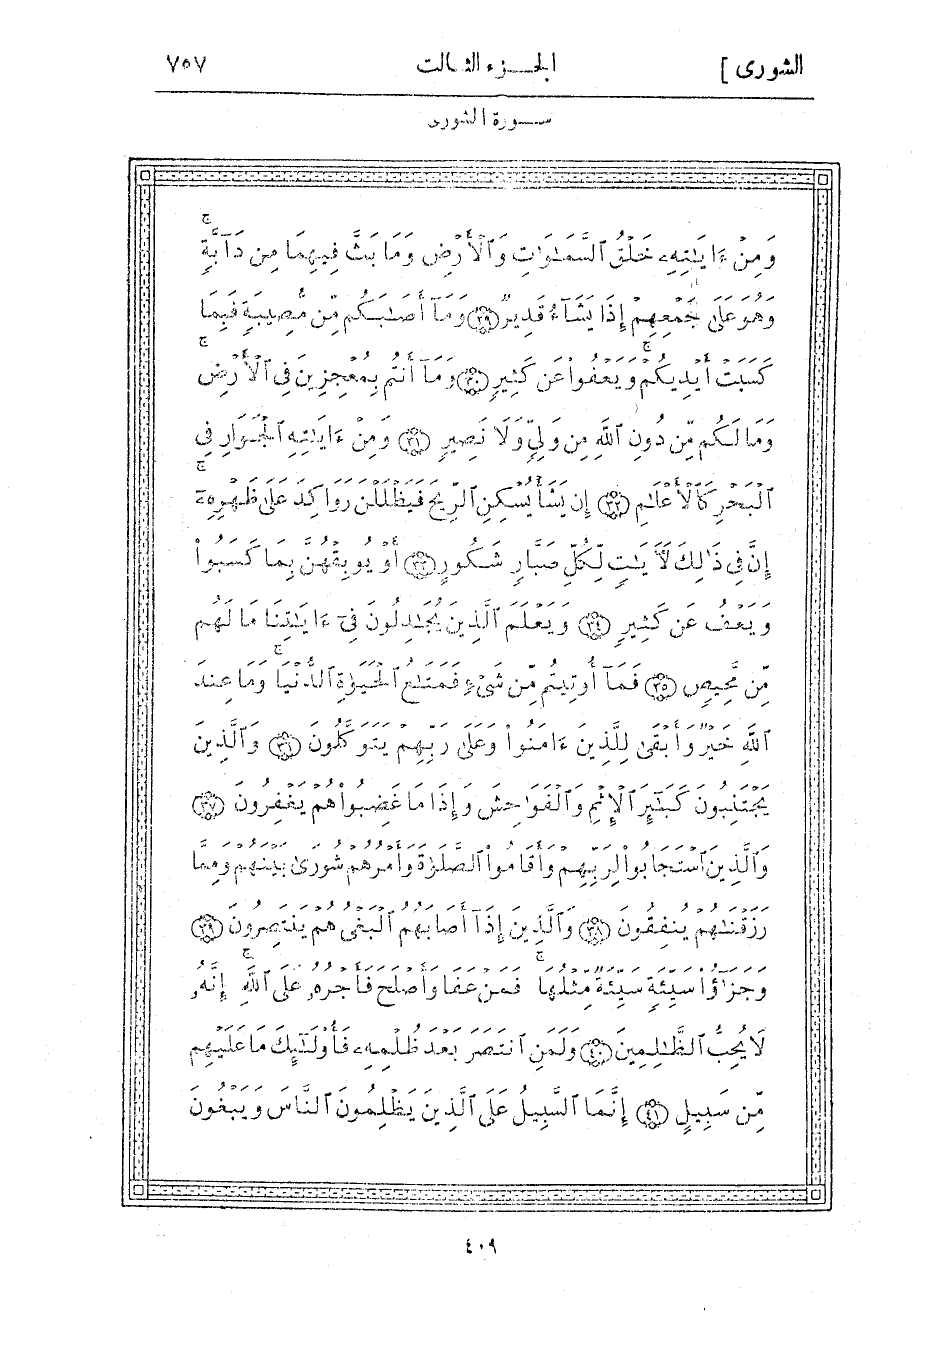 الشورى ]	الجـــزء الثـالث	٧٥٧
ســـورة الشورى
وَمِنْ ءَايَٰتِهِۦ خَلْقُ ٱلسَّمَٰوَٰتِ وَٱلْأَرْضِ وَمَا بَثَّ فِيهِمَا مِن دَآبَّةٍۚ
وَهُوَ عَلَىٰ جَمْعِهِمْ إِذَا يَشَآءُ قَدِيرٌ ﴿٢٩﴾ وَمَآ أَصَٰبَكُم مِّن مُّصِيبَةٍ فَبِمَا
كَسَبَتْ أَيْدِيكُمْ وَيَعْفُوا۟ عَن كَثِيرٍ ﴿٣٠﴾ وَمَآ أَنتُم بِمُعْجِزِينَ فِى ٱلْأَرْضِۚ
وَمَا لَكُم مِّن دُونِ ٱللَّهِ مِن وَلِىٍّ وَلَا نَصِيرٍ ﴿٣١﴾ وَمِنْ ءَايَٰتِهِ ٱلْجَوَارِ فِى
ٱلْبَحْرِ كَٱلْأَعْلَٰمِ ﴿٣٢﴾ إِن يَشَأْ يُسْكِنِ ٱلرِّيحَ فَيَظْلَلْنَ رَوَاكِدَ عَلَىٰ ظَهْرِهِۦٓۚ
إِنَّ فِى ذَٰلِكَ لَأٓيَٰتٍ لِّكُلِّ صَبَّارٍ شَكُورٍ ﴿٣٣﴾ أَوْ يُوبِقْهُنَّ بِمَا كَسَبُوا۟
وَيَعْفُ عَن كَثِيرٍ ﴿٣٤﴾ وَيَعْلَمَ ٱلَّذِينَ يُجَٰدِلُونَ فِىٓ ءَايَٰتِنَا مَا لَهُم
مِّن مَّحِيصٍ ﴿٣٥﴾ فَمَآ أُوتِيتُم مِّن شَىْءٍ فَمَتَٰعُ ٱلْحَيَوٰةِ ٱلدُّنْيَاۚ وَمَا عِندَ
ٱللَّهِ خَيْرٌ وَأَبْقَىٰ لِلَّذِينَ ءَامَنُوا۟ وَعَلَىٰ رَبِّهِمْ يَتَوَكَّلُونَ ﴿٣٦﴾ وَٱلَّذِينَ
يَجْتَنِبُونَ كَبَٰٓئِرَ ٱلْإِثْمِ وَٱلْفَوَٰحِشَ وَإِذَا مَا غَضِبُوا۟ هُمْ يَغْفِرُونَ ﴿٣٧﴾
وَٱلَّذِينَ ٱسْتَجَابُوا۟ لِرَبِّهِمْ وَأَقَامُوا۟ ٱلصَّلَوٰةَ وَأَمْرُهُمْ شُورَىٰ بَيْنَهُمْ وَمِمَّا
رَزَقْنَٰهُمْ يُنفِقُونَ ﴿٣٨﴾ وَٱلَّذِينَ إِذَآ أَصَابَهُمُ ٱلْبَغْىُ هُمْ يَنتَصِرُونَ ﴿٣٩﴾
وَجَزَٰٓؤُا۟ سَيِّئَةٍ سَيِّئَةٌ مِّثْلُهَاۖ فَمَنْ عَفَا وَأَصْلَحَ فَأَجْرُهُۥ عَلَى ٱللَّهِۚ إِنَّهُۥ
لَا يُحِبُّ ٱلظَّٰلِمِينَ ﴿٤٠﴾ وَلَمَنِ ٱنتَصَرَ بَعْدَ ظُلْمِهِۦ فَأُو۟لَٰٓئِكَ مَا عَلَيْهِم
مِّن سَبِيلٍ ﴿٤١﴾ إِنَّمَا ٱلسَّبِيلُ عَلَى ٱلَّذِينَ يَظْلِمُونَ ٱلنَّاسَ وَيَبْغُونَ
٤٠٩